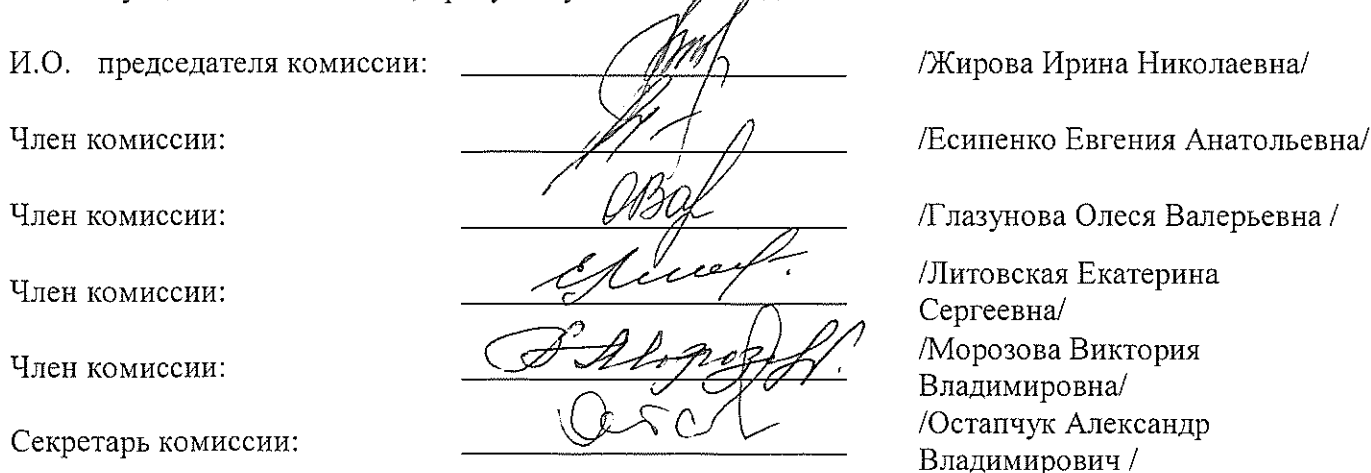 И.О. председателя комиссии: /Жирова Ирина Николаевна/
Член комиссии: /Есипенко Евгения Анатольевна/
Член комиссии: /Глазунова Олеся Валерьевна /
Член комиссии: /Литовская Екатерина
Сергеевна/
Член комиссии: /Морозова Виктория
Владимировна/
Секретарь комиссии: /Остапчук Александр
Владимирович /